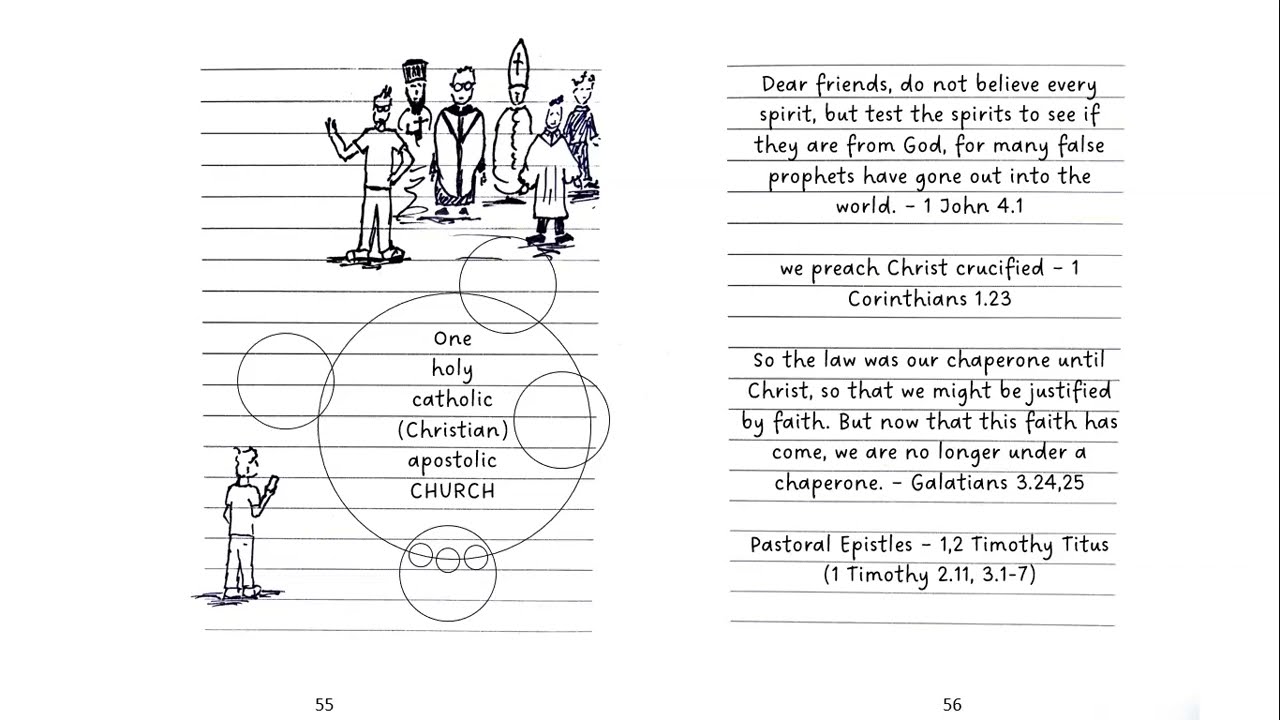 One
holy
catholic
(Christian)
apostolic
CHURCH
55
Dear friends, do not believe every
spirit, but test the spirits to see if
they are from God, for many false
prophets have gone out into the
world. – 1 John 4.1
we preach Christ crucified – 1
Corinthians 1.23
So the law was our chaperone until
Christ, so that we might be justified
by faith. But now that this faith has
come, we are no longer under a
chaperone. – Galatians 3.24,25
Pastoral Epistles – 1,2 Timothy Titus
(1 Timothy 2.11, 3.1-7)
56